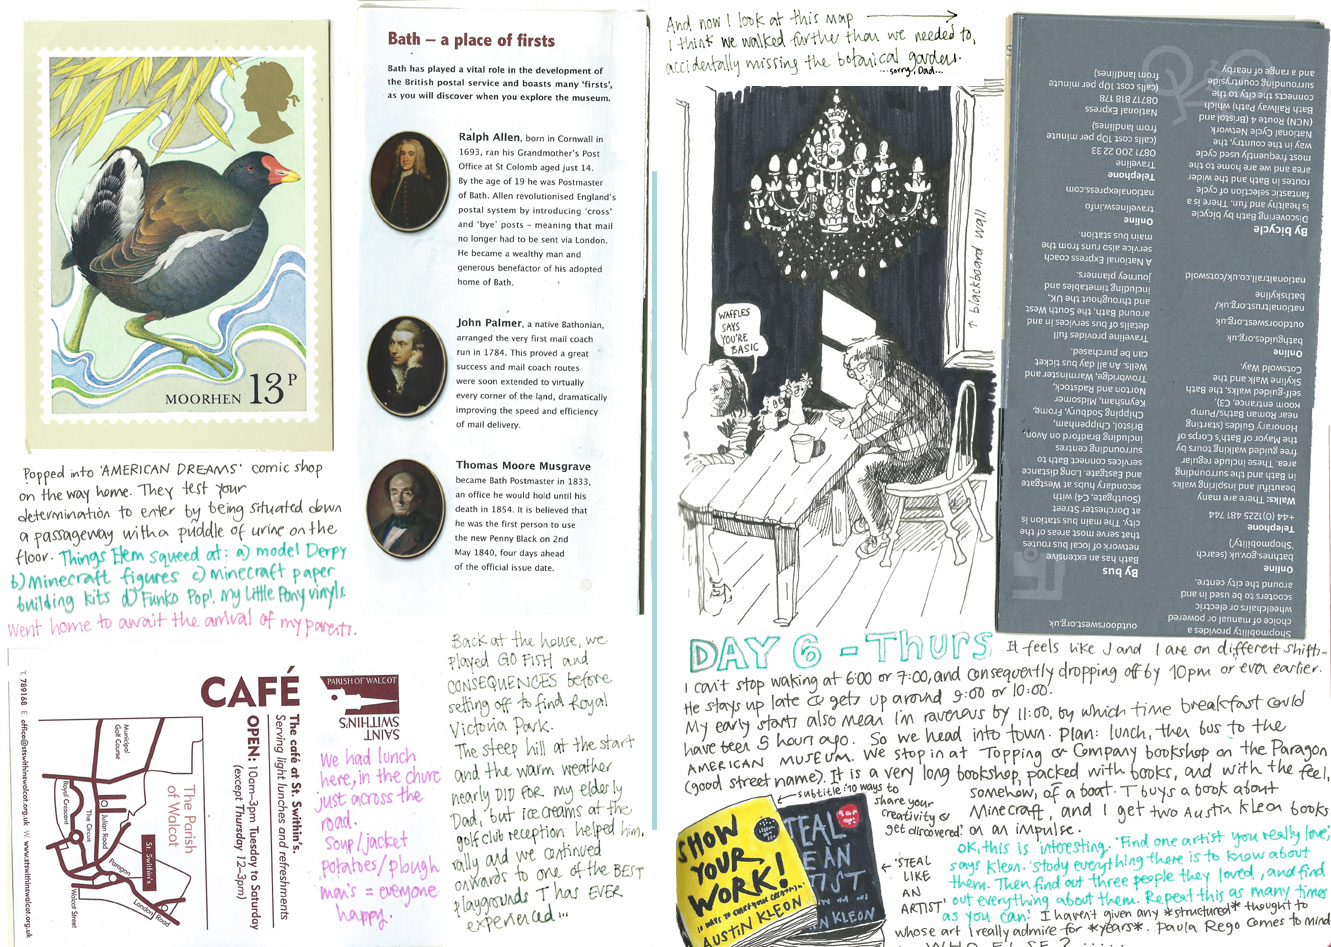 MOORHEN 13P
Popped into 'AMERICAN DREAMS' comic shop
on the way home. They test your
determination to enter by being situated down
a passageway with a puddle of urine on the
floor. Things Elem squeed at: a) model Derpy
b) Minecraft figures c) Minecraft paper
building kits d) Funko Pop! My Little Pony vinyls.
Went home to await the arrival of my parents.
Bath – a place of firsts
Bath has played a vital role in the development of
the British postal service and boasts many 'firsts',
as you will discover when you explore the museum.
Ralph Allen, born in Cornwall in
1693, ran his Grandmother's Post
Office at St Colomb aged just 14.
By the age of 19 he was Postmaster
of Bath. Allen revolutionised England's
postal system by introducing 'cross'
and 'bye' posts – meaning that mail
no longer had to be sent via London.
He became a wealthy man and
generous benefactor of his adopted
home of Bath.
John Palmer, a native Bathonian,
arranged the very first mail coach
run in 1784. This proved a great
success and mail coach routes
were soon extended to virtually
every corner of the land, dramatically
improving the speed and efficiency
of mail delivery.
Thomas Moore Musgrave
became Bath Postmaster in 1833,
an office he would hold until his
death in 1854. It is believed that
he was the first person to use
the new Penny Black on 2nd
May 1840, four days ahead
of the official issue date.
CAFÉ
The café at St. Swithin's.
Serving light lunches and refreshments
OPEN: 10am–3pm Tuesday to Saturday
(except Thursday 12–3pm)
The Parish
of Walcot
Municipal
Golf Course
Royal Crescent
The Circus
Julian Road
Paragon
St. Swithin's
Walcot Street
London Road
T. 789168 E. office@stswithinswalcot.org.uk W. www.stswithinswalcot.org.uk
PARISH OF WALCOT
SAINT
SWITHIN'S
We had lunch
here, in the churc
just across the
road.
Soup/jacket
potatoes/plough
man's = everyone
happy.
Back at the house, we
played GO FISH and
CONSEQUENCES before
setting off to find Royal
Victoria Park.
The steep hill at the start
and the warm weather
nearly DID for my elderly
Dad, but ice creams at the
golf club reception helped him,
rally and we continued
onwards to one of the BEST
playgrounds T has EVER
experienced...
And now I look at this map
I think we walked further than we needed to,
accidentally missing the botanical gardens.
...sorry, Dad...
WAFFLES
SAYS
YOU'RE
BASIC
blackboard wall
Shopmobility provides a
choice of manual or powered
wheelchairs or electric
scooters to be used in and
around the city centre.
Online
bathnes.gov.uk (search
'Shopmobility')
Telephone
+44 (0)1225 481 744
Walks: There are many
beautiful and inspiring walks
in Bath and the surrounding
area. These include regular
free guided walking tours by
the Mayor of Bath's Corps of
Honorary Guides (starting
near Roman Baths/Pump
Room entrance, C3),
self-guided walks, the Bath
Skyline Walk and the
Cotswold Way.
Online
bathguides.org.uk
outdoorswest.org.uk
nationaltrust.org.uk/
bathskyline
nationaltrail.co.uk/cotswold
By bicycle
Discovering Bath by bicycle
is healthy and fun. There is a
fantastic selection of cycle
routes in Bath and the wider
area and we are home to the
most frequently used cycle
way in the country, the
National Cycle Network
(NCN) Route 4 (Bristol and
Bath Railway Path) which
connects the city to the
surrounding countryside
and a range of nearby
outdoorswest.org.uk
By bus
Bath has an extensive
network of local bus routes
that serve most areas of the
city. The main bus station is
at Dorchester Street
(Southgate, C4) with
secondary hubs at Westgate
and Eastgate. Long distance
services connect Bath to
surrounding centres
including Bradford on Avon,
Bristol, Chippenham,
Chipping Sodbury, Frome,
Keynsham, Midsomer
Norton and Radstock,
Trowbridge, Warminster and
Wells. An all day bus ticket
can be purchased.
Traveline provides full
details of bus services in and
around Bath, the South West
and throughout the UK,
including timetables and
journey planners.
A National Express coach
service also runs from the
main bus station.
Online
travelinesw.info
nationalexpress.com
Telephone
Traveline
0871 200 22 33
(calls cost 10p per minute
from landlines)
National Express
08717 818 178
(calls cost 10p per minute
from landlines)
DAY 6 - Thurs
It feels like J and I are on different shifts -
I can't stop waking at 6:00 or 7:00, and consequently dropping off by 10pm or even earlier.
He stays up late & gets up around 9:00 or 10:00.
My early starts also mean I'm ravenous by 11:00, by which time breakfast could
have been 5 hours ago. So we head into town. Plan: lunch, then bus to the
AMERICAN MUSEUM. We stop in at Topping & Company bookshop on the Paragon
(good street name). It is a very long bookshop, packed with books, and with the feel,
somehow, of a boat. T buys a book about
Minecraft, and I get two Austin Kleon books
on an impulse.
subtitle: '10 ways to
share your
creativity &
get discovered'
SHOW
YOUR
WORK!
AUSTIN KLEON
STEAL
LIKE AN
ARTIST
AUSTIN KLEON
'STEAL
LIKE
AN
ARTIST'
OK, this is interesting. 'Find one artist you really love,'
says Kleon. 'Study everything there is to know about
them. Then find out three people they loved, and find
out everything about them. Repeat this as many times
as you can.' I haven't given any *structured* thought to
whose art I really admire for *years*. Paula Rego comes to mind
WHO ELSE? .....